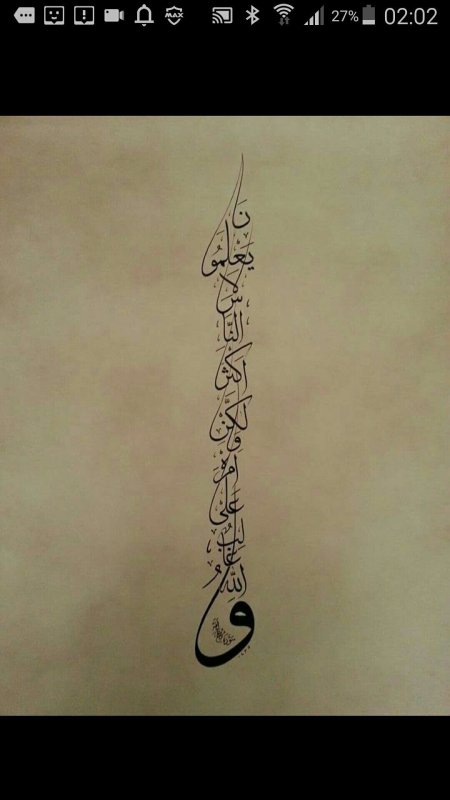 27% 02:02
وَاللَّهُ
غَالِبٌ
عَلَىٰ
أَمْرِهِ
وَلَٰكِنَّ
أَكْثَرَ
النَّاسِ
لَا
يَعْلَمُونَ